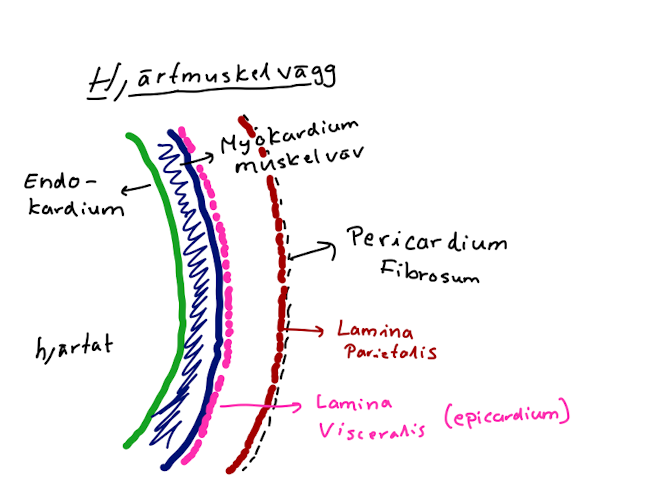 Hjärtmuskelvägg
Myokardium
muskelväv
Endo-
kardium
Pericardium
Fibrosum
hjärtat
Lamina
Parietalis
Lamina
Visceralis (epicardium)